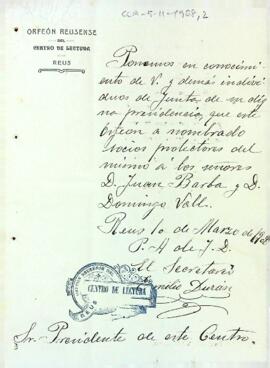 CCR-5-11-1908,2
ORFEÓN REUSENSE
DEL
CENTRO DE LECTURA
REUS
Ponemos en conocimi
ento de V. y demás indivi
duos de Junta, de su dig
na presidencia, que este
orfeon a nombrado
socios protectores del
mismo á los señores
D. Juan Barba y D.
Domingo Vall.
Reus 10 de Marzo de 1908
P. A de J. D.
El Secretario
Durán
CENTRO DE LECTURA
REUS
Sr. Presidente de este Centro.